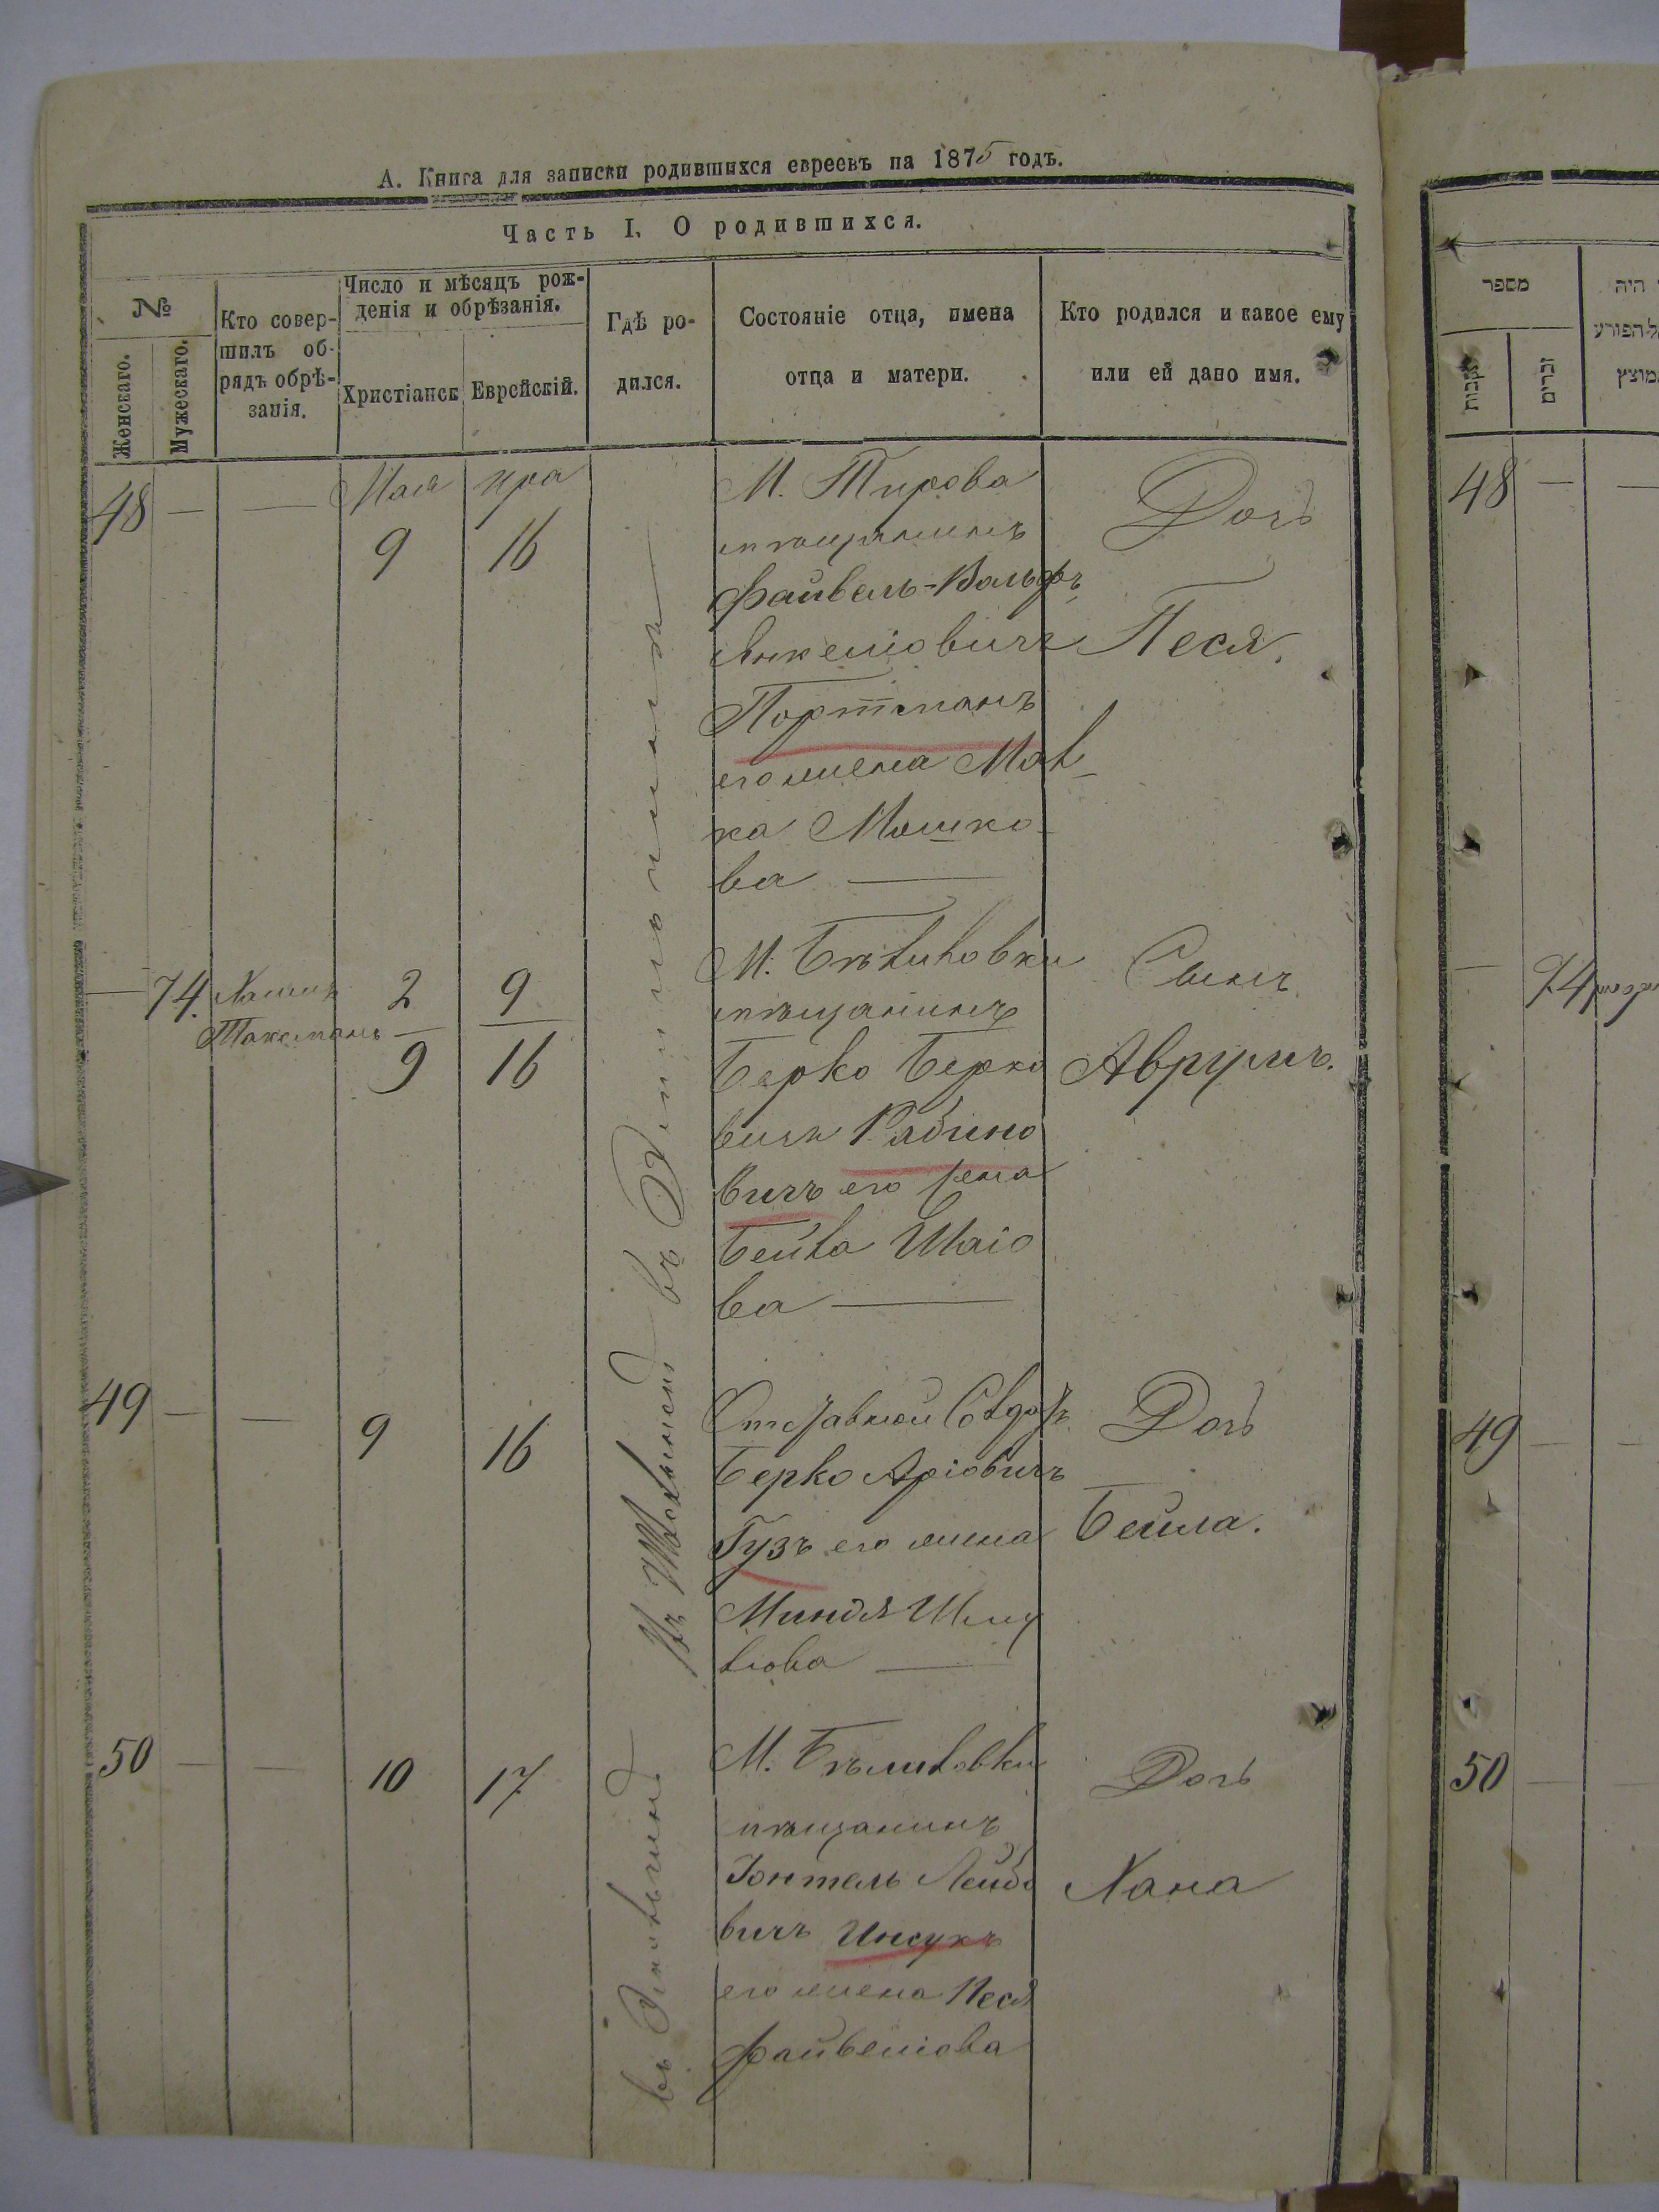 А. Книга для записки родившихся евреевъ на 1875 годъ.
Часть I. О родившихся.
№
Женскаго.
Мужескаго.
Кто совер-
шилъ об-
рядъ обрѣ-
занія.
Число и мѣсяцъ рож-
денія и обрѣзанія.
Христіанск
Еврейскій.
Гдѣ ро-
дился.
Состояніе отца, имена
отца и матери.
Кто родился и какое ему
или ей дано имя.
48 — — Мая Ира
9 16
М. Тирова
мѣщанинъ
Файвель-Вольфъ
Янкеліовичъ
Портманъ
его жена Мал-
ка Мошко-
ва —
Дочь
Песя.
— 74. Хаимъ
Таксманъ
2 9
9 16
М. Бѣлиловки
мѣщанинъ
Берко Берко
вичъ Рабино
вичъ его жена
Бейла Шаіо
ва —
Сынъ
Аврумъ.
49 — — 9 16
Отставной Солдатъ
Берко Аріовичъ
Гузъ его жена
Миндля Шму
ліова —
Дочь
Бейла.
50 — — 10 17
М. Бѣлиловки
мѣщанинъ
Лейбо
вичъ
его жена Песя
Файвеліова
Дочь
Хана
въ
въ
מספר
נקבות
זכרים
היה
הפורע
48 — —
— 74
49 — —
50 —